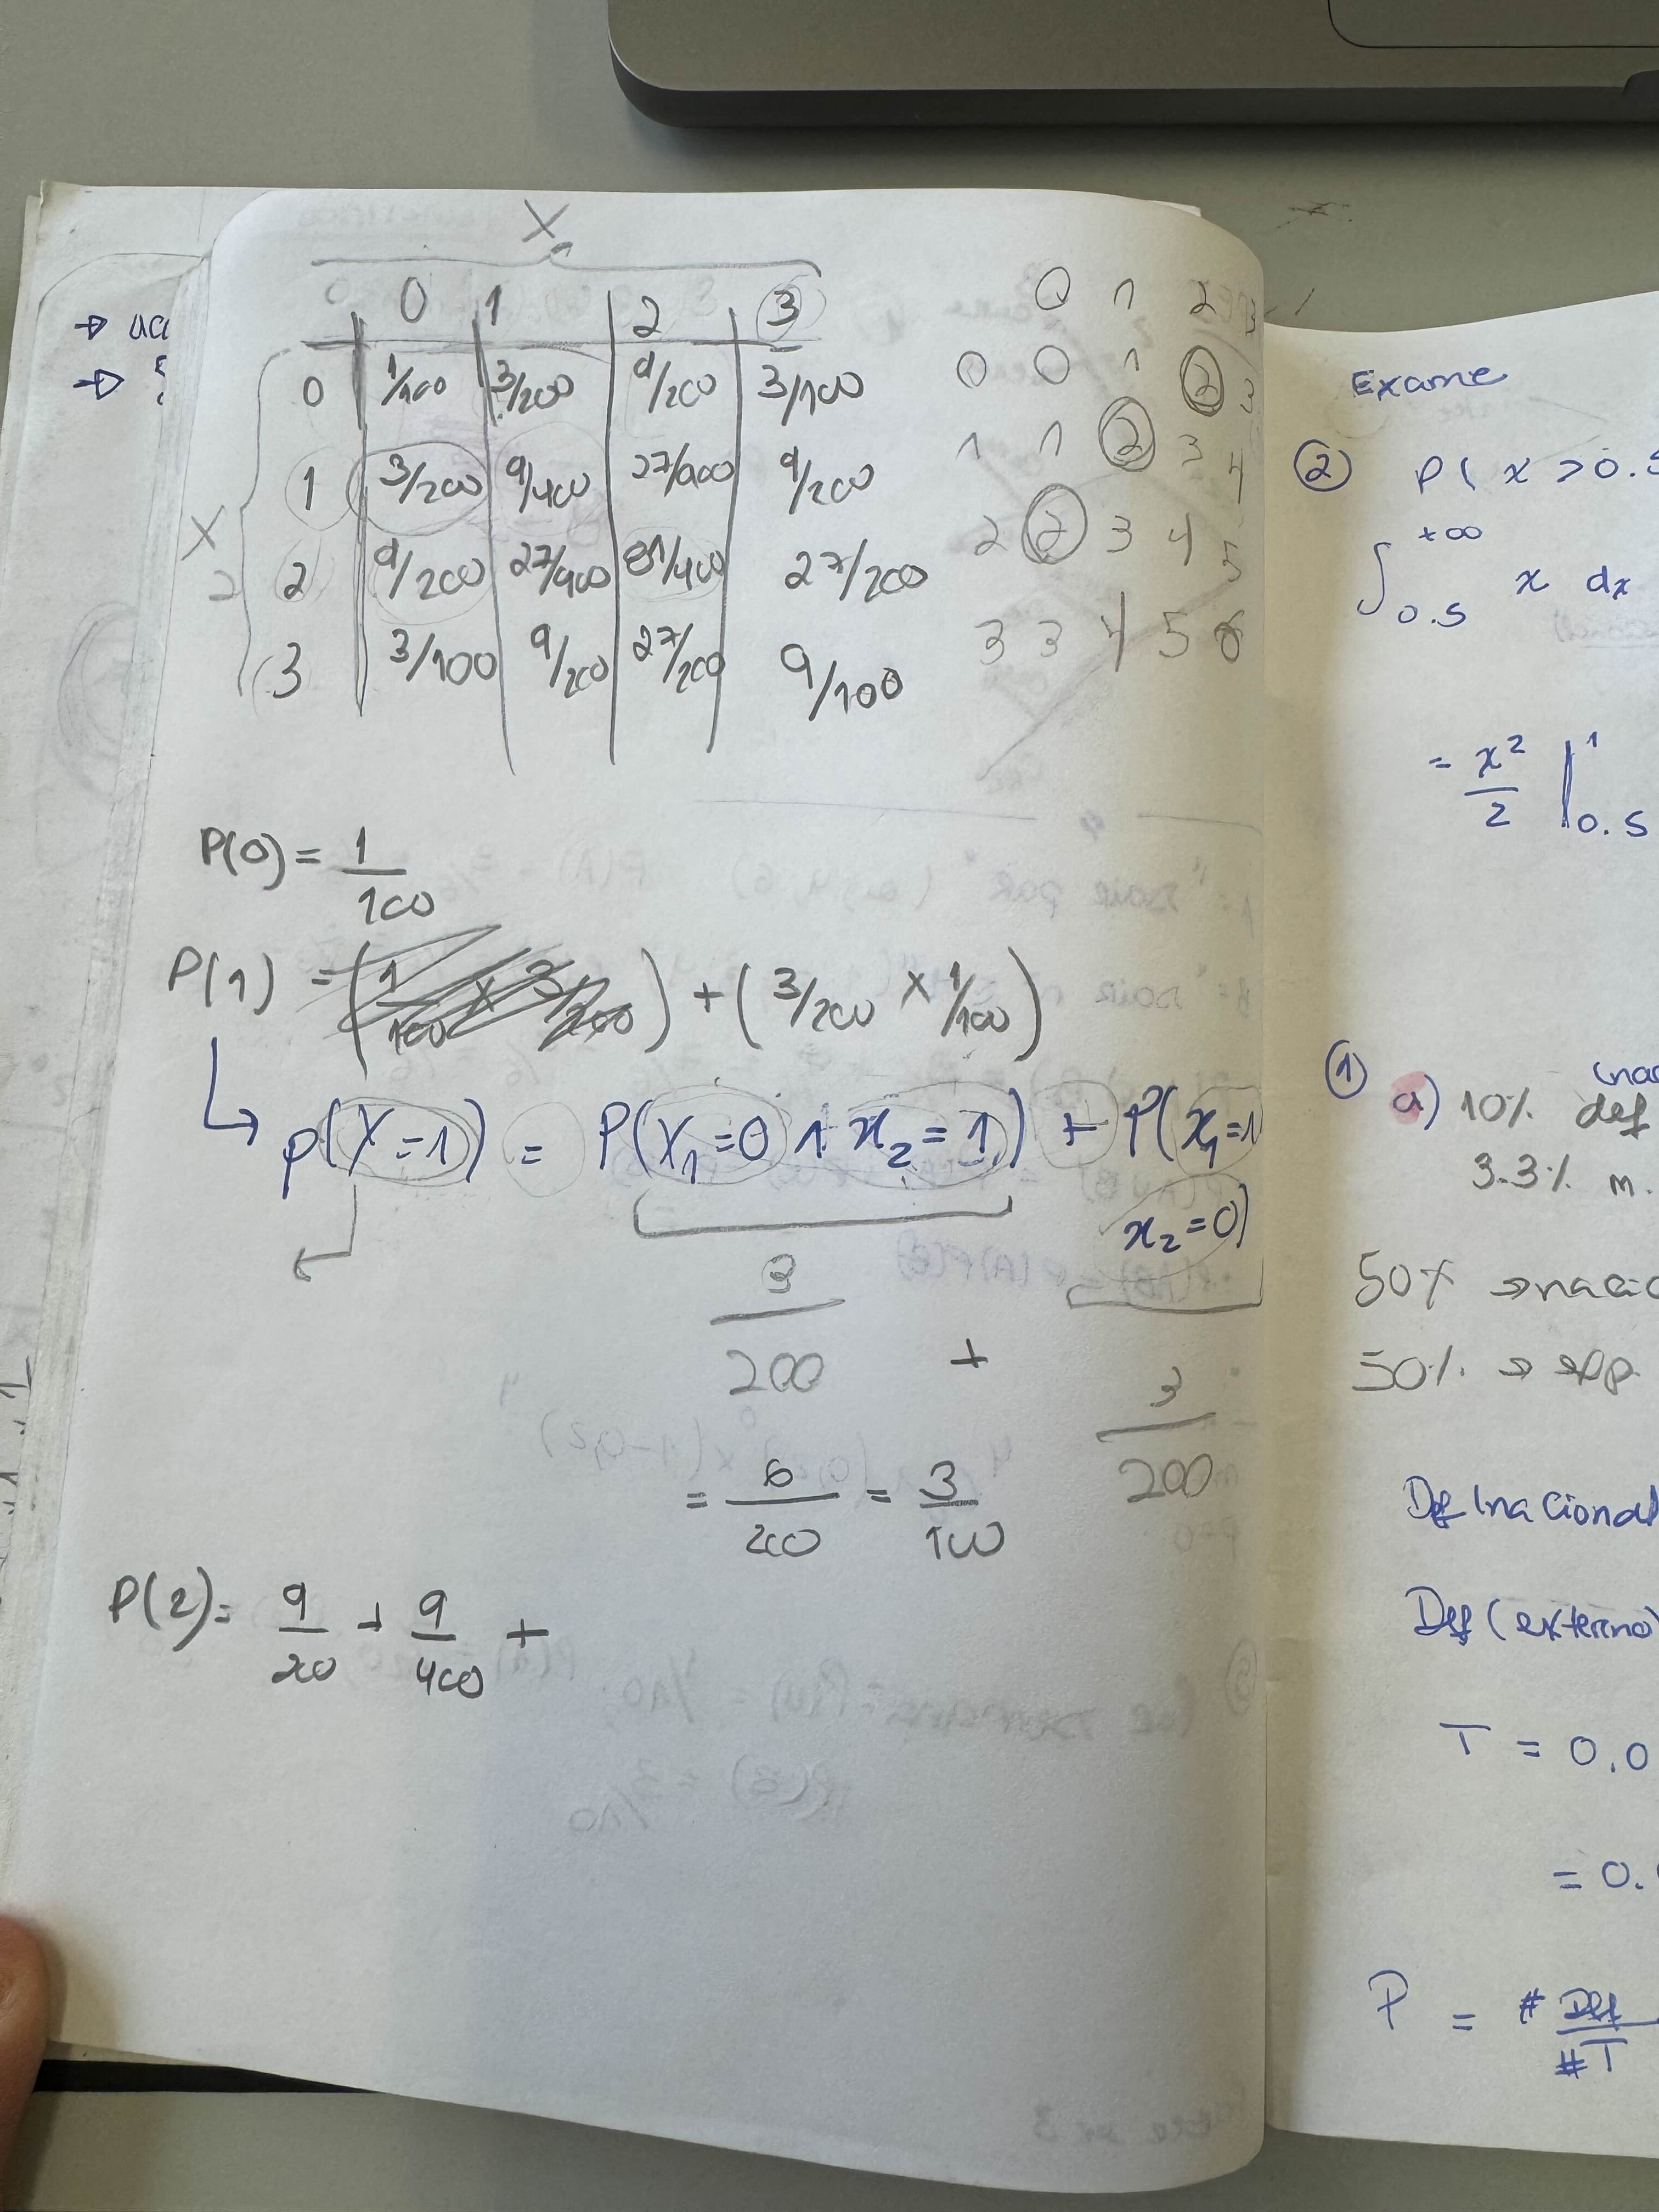 → ucc
→
X₁
0 1 2 3
0 1/100 3/200 9/200 3/100
1 3/200 9/400 27/400 9/200
X₂
2 9/200 27/400 81/400 27/200
3 3/100 9/200 27/200 9/100
0 1 2 3
0 0 1 2 3
1 1 2 3 4
2 2 3 4 5
3 3 4 5 6
P(0) = 1/100
P(1) = (1/100 × 3/200) + (3/200 × 1/100)
P(X=1) = P(X₁=0 ∧ x₂=1) + P(x₁=1
x₂=0)
3/200 + 3/200
= 6/200 = 3/100
P(2) = 9/200 + 9/400 +
Exame
② P( x > 0.5
∫ +∞ 0.5 x dx
= x²/2 | 1 0.5
① a) 10% def (nac
3.3% m.
50% → nacio
50% → esp.
Def (nacional
Def (externo)
T = 0.0
= 0.
P = # Def / #T